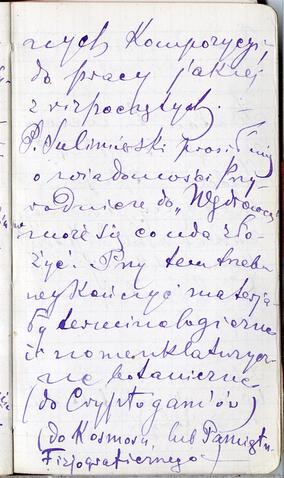 nych kompozycyj
do pracy jakiej
z rozpoczętych.
P. Sulimierski prosił mię
o wiadomości Przy-
rodnicze do „Wędrowca”
może się co uda zło-
żyć. Przy tem trzeba
wykończyć materja-
ły terminologiczne
i nomenklaturycz-
ne botaniczne
(do Cryptogamów)
(do Kosmosu, lub Pamiętn.
Fizjograficznego